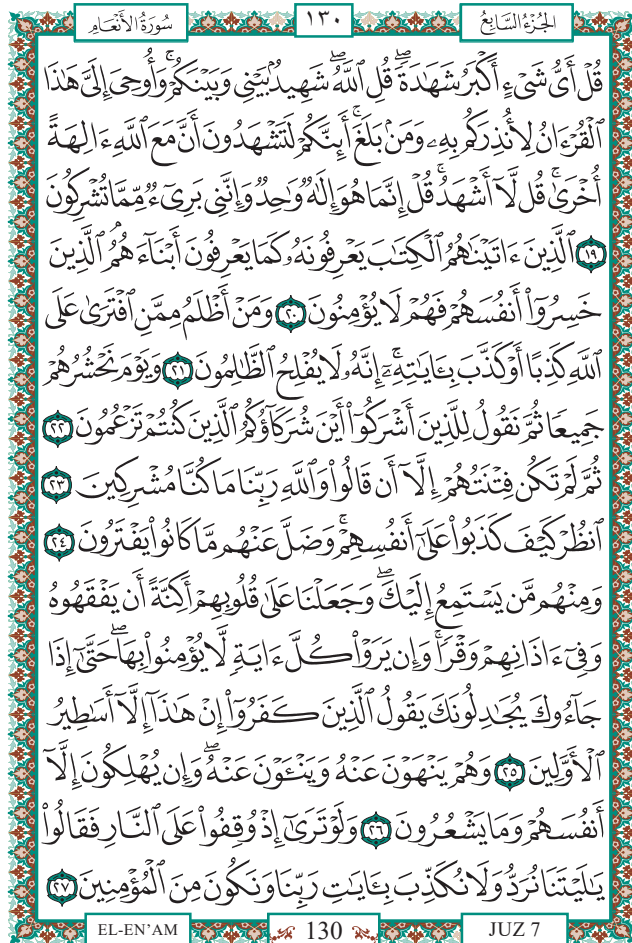 سُورَةُ الْأَنْعَامِ ١٣٠ الجُزْءُ السَّابِعُ
قُلْ أَىُّ شَىْءٍ أَكْبَرُ شَهَٰدَةًۖ قُلِ ٱللَّهُۖ شَهِيدُۢ بَيْنِى وَبَيْنَكُمْۚ وَأُوحِىَ إِلَىَّ هَٰذَا
ٱلْقُرْءَانُ لِأُنذِرَكُم بِهِۦ وَمَنۢ بَلَغَۚ أَئِنَّكُمْ لَتَشْهَدُونَ أَنَّ مَعَ ٱللَّهِ ءَالِهَةً
أُخْرَىٰۚ قُل لَّآ أَشْهَدُۚ قُلْ إِنَّمَا هُوَ إِلَٰهٌ وَٰحِدٌ وَإِنَّنِى بَرِىٓءٌ مِّمَّا تُشْرِكُونَ
١٩ ٱلَّذِينَ ءَاتَيْنَٰهُمُ ٱلْكِتَٰبَ يَعْرِفُونَهُۥ كَمَا يَعْرِفُونَ أَبْنَآءَهُمُ ٱلَّذِينَ
خَسِرُوٓا۟ أَنفُسَهُمْ فَهُمْ لَا يُؤْمِنُونَ ٢٠ وَمَنْ أَظْلَمُ مِمَّنِ ٱفْتَرَىٰ عَلَى
ٱللَّهِ كَذِبًا أَوْ كَذَّبَ بِـَٔايَٰتِهِۦٓۚ إِنَّهُۥ لَا يُفْلِحُ ٱلظَّٰلِمُونَ ٢١ وَيَوْمَ نَحْشُرُهُمْ
جَمِيعًا ثُمَّ نَقُولُ لِلَّذِينَ أَشْرَكُوٓا۟ أَيْنَ شُرَكَآؤُكُمُ ٱلَّذِينَ كُنتُمْ تَزْعُمُونَ ٢٢
ثُمَّ لَمْ تَكُن فِتْنَتُهُمْ إِلَّآ أَن قَالُوا۟ وَٱللَّهِ رَبِّنَا مَا كُنَّا مُشْرِكِينَ ٢٣
ٱنظُرْ كَيْفَ كَذَبُوا۟ عَلَىٰٓ أَنفُسِهِمْۚ وَضَلَّ عَنْهُم مَّا كَانُوا۟ يَفْتَرُونَ ٢٤
وَمِنْهُم مَّن يَسْتَمِعُ إِلَيْكَۖ وَجَعَلْنَا عَلَىٰ قُلُوبِهِمْ أَكِنَّةً أَن يَفْقَهُوهُ
وَفِىٓ ءَاذَانِهِمْ وَقْرًاۚ وَإِن يَرَوْا۟ كُلَّ ءَايَةٍ لَّا يُؤْمِنُوا۟ بِهَاۖ حَتَّىٰٓ إِذَا
جَآءُوكَ يُجَٰدِلُونَكَ يَقُولُ ٱلَّذِينَ كَفَرُوٓا۟ إِنْ هَٰذَآ إِلَّآ أَسَٰطِيرُ
ٱلْأَوَّلِينَ ٢٥ وَهُمْ يَنْهَوْنَ عَنْهُ وَيَنْـَٔوْنَ عَنْهُۖ وَإِن يُهْلِكُونَ إِلَّآ
أَنفُسَهُمْ وَمَا يَشْعُرُونَ ٢٦ وَلَوْ تَرَىٰٓ إِذْ وُقِفُوا۟ عَلَى ٱلنَّارِ فَقَالُوا۟
يَٰلَيْتَنَا نُرَدُّ وَلَا نُكَذِّبَ بِـَٔايَٰتِ رَبِّنَا وَنَكُونَ مِنَ ٱلْمُؤْمِنِينَ ٢٧
EL-EN'AM 130 JUZ 7